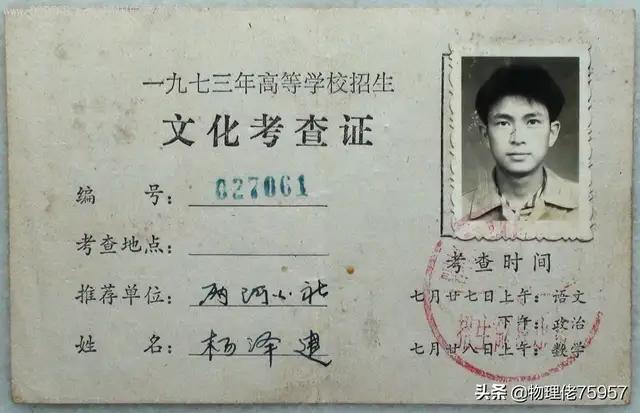 一九七三年高等学校招生
文化考查证
编 号： 027061
考查地点：
推荐单位： 两河公社
姓 名： 杨泽建
考查时间
七月廿七日上午：语文
下午：政治
七月廿八日上午：数学
头条 @物理佬75957